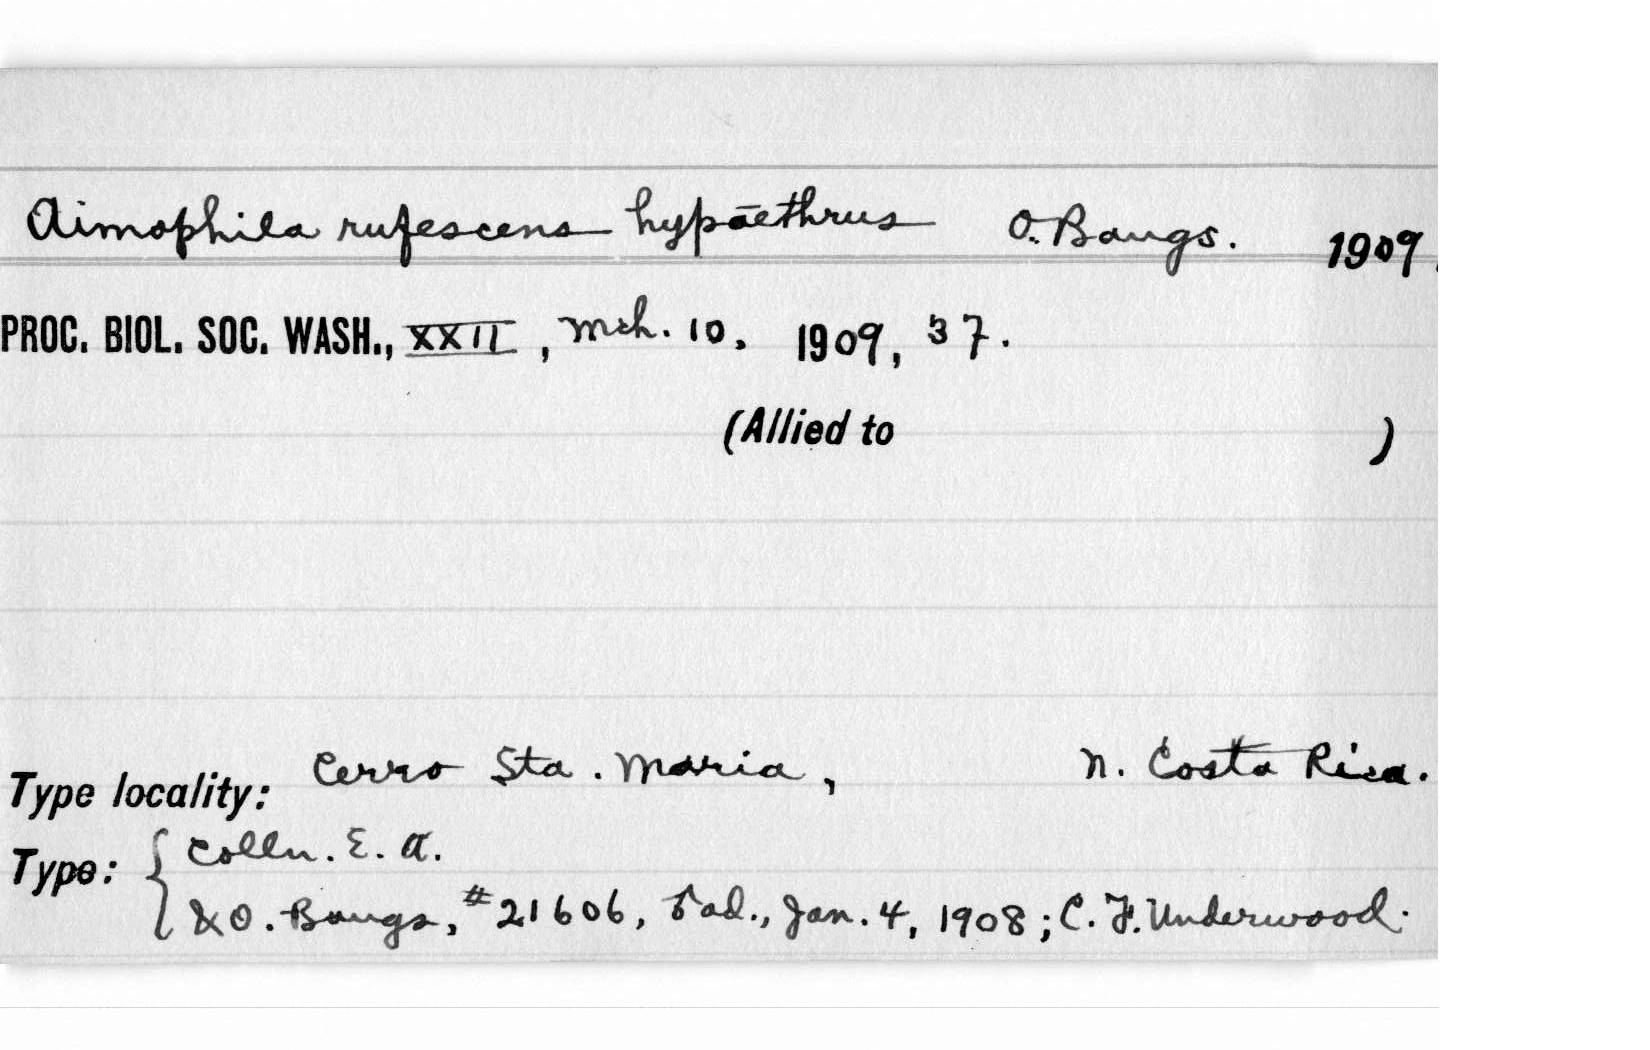 Aimophila rufescens hypāethrus O. Bangs. 1909.
PROC. BIOL. SOC. WASH., XXII, Mch. 10, 1909, 37.
(Allied to )
Type locality: Cerro Sta. Maria, N. Costa Rica.
Type: { Colln. E. A.
& O. Bangs, #21606, ♂ad., Jan. 4, 1908; C. F. Underwood.